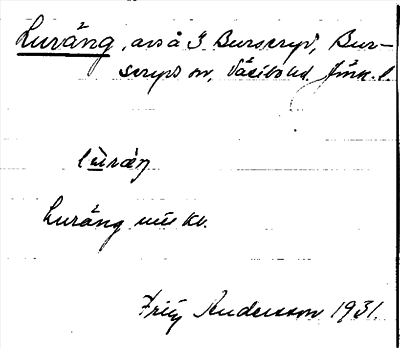 Luräng, avs å 3 Burseryd, Bur-
seryds sn, Västbo hd. Jönk. l.
Luräng
Fritz Andersson 1931.